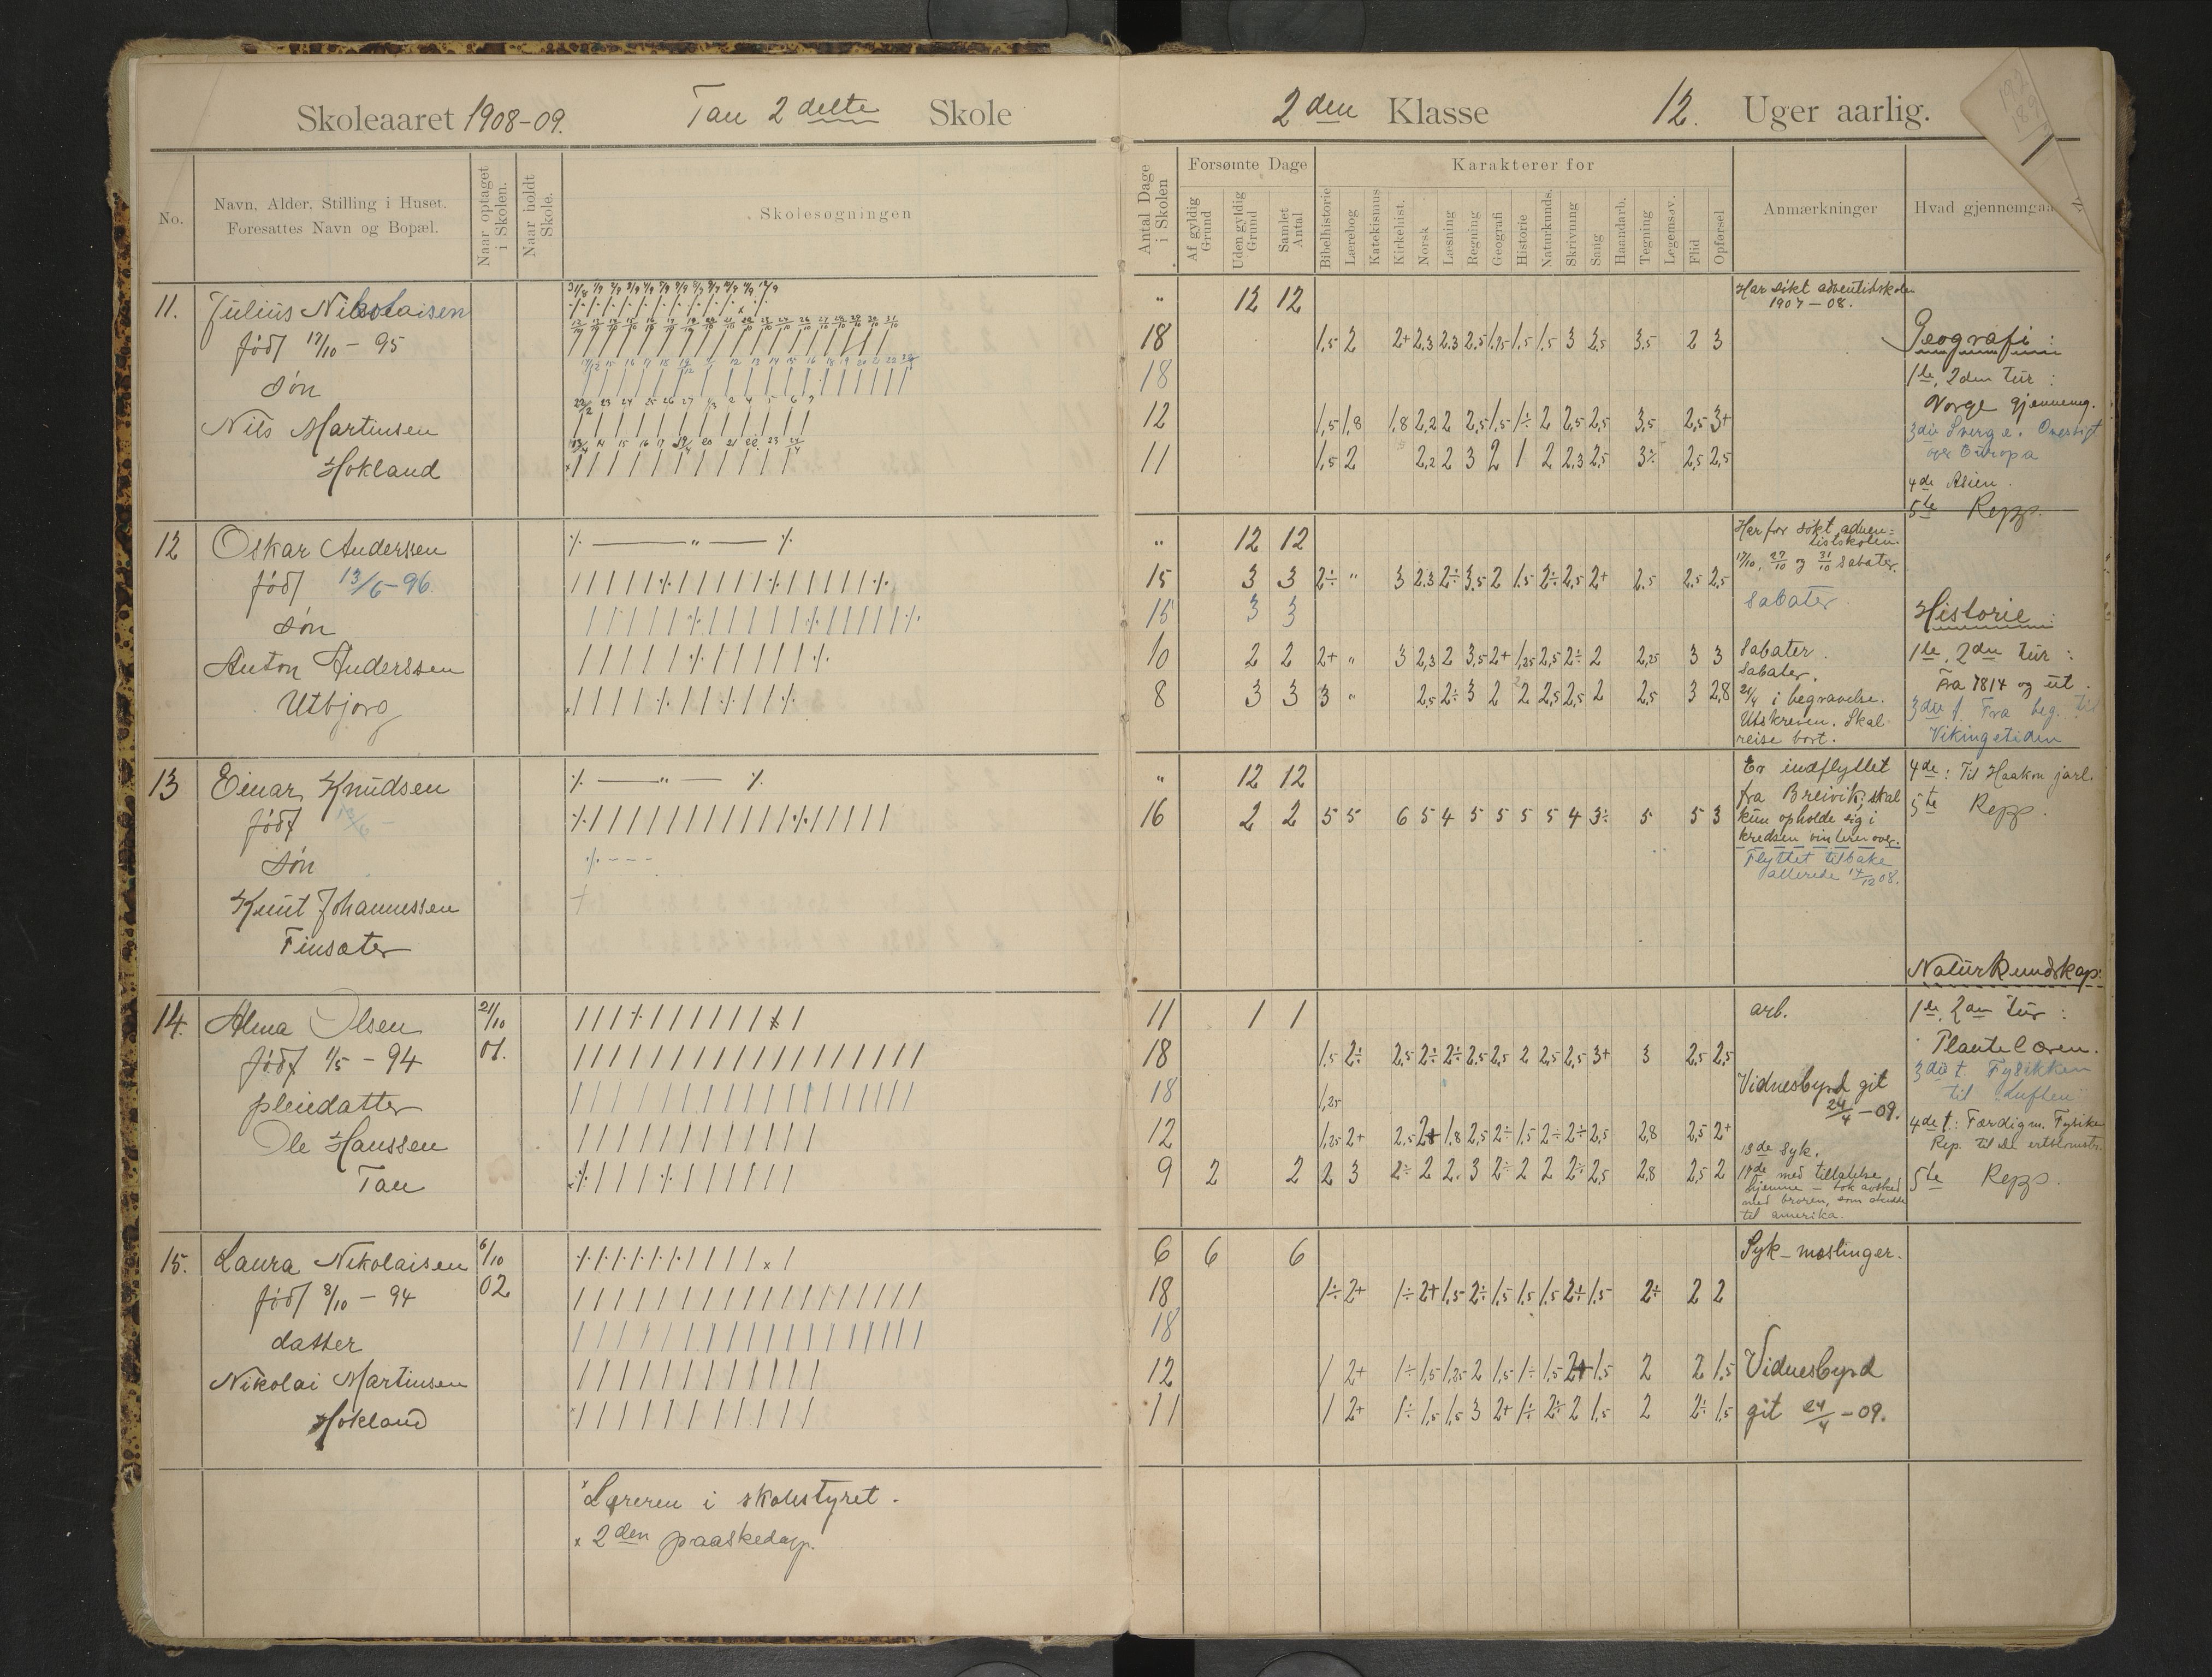 Skoleaaret 1908-09. Tau 2 delte Skole
2den Klasse 12. Uger aarlig.
No.
Navn, Alder, Stilling i Huset.
Foresattes Navn og Bopæl.
Naar optaget
i Skolen.
Naar holdt
Skole.
Skolesøgningen
Antal Dage
i Skolen
Forsømte Dage
Af gyldig
Grund
Uden gyldig
Grund
Samlet
Antal
Karakterer for
Bibelhistorie
Lærebog
Katekismus
Kirkehist.
Norsk
Læsning
Regning
Geografi
Historie
Naturkunds.
Skrivning
Sang
Haandarb.
Tegning
Legemsøv.
Flid
Opførsel
Anmærkninger
Hvad gjennemgaa
11. Julius Nikolaisen
født 17/10 - 95
søn
Nils Martinsen
Hokland
" 12 12
18 1,5 2 2+ 2,3 2,3 2,5 1,75 1,5 1,5 3 2,5 3,5 2 3
18
12 1,5 1,8 1,8 2,2 2 2,5 1,5 1÷ 2 2,5 2,5 3,5 2,5 3+
11 1,5 2 2,2 2 3 2 1 2 2,3 2,5 3÷ 2,5 2,5
Har søkt adventistskolen
1907-08.
Geografi:
1ste, 2den tur:
Norge gjennemg.
3die Sverge. Oversigt
over Europa
4de Asien.
5te Repp.
12 Oskar Anderssen
født 13/6 - 96
søn
Anton Anderssen
Utbjorg
" 12 12
15 3 3 2÷ " 3 2,3 2÷ 3,5 2 1,5 2÷ 2,5 2+ 2,5 2,5 2,5
15 3 3
10 2 2 2+ " 3 2,3 2 3,5 2+ 1,25 2,5 2÷ 2 2,25 3 3
8 3 3 3 " 2,5 2÷ 3 2 2 2,5 2,5 2 2,5 3 2,8
Her før søkt adven=
tistskolen.
17/10, 27/10 og 31/10 sabater.
Sabater.
Sabater.
Sabater.
21/4 i begravelse.
Utskreven. Skal
reise bort.
Historie:
1ste, 2den tur:
Fra 1814 og ut.
3die t. Fra beg. til
Vikingetiden
13 Einar Knudsen
født 13/6 -
søn
Knut Johannessen
Finsæter
" 12 12
16 2 2 5 5 6 5 4 5 5 5 5 4 3÷ 5 5 3
Er indflyttet
fra Breivik; skal
kun opholde sig i
kredsen vinteren over.
Flyttet tilbake
allerede 14/12 08.
4de: Til Haakon jarl.
5te Repp.
Naturkundskap:
14. Alma Olsen 21/10
født 1/5 - 94 01.
pleiedatter
Ole Hanssen
Tau
11 1 1
18 1,5 2÷ 2,5 2÷ 2÷ 2,5 2,5 2 2,5 2,5 3+ 3 2,5 2,5
18 1,25
12 1,25 2+ 2,5 2+ 1,8 2,5 2÷ 1,5 2÷ 2÷ 2,5 2,8 2,5 2+
9 2 2 2 3 2÷ 2 2. 3 2÷ 2 2 2÷ 2,5 2,8 2,5 2
arb.
Vidnesbyrd git
24/4 - 09.
13de Syk.
17de med tilladelse
hjemme - tok avsked
med broren, som
til amerika.
1ste, 2den tur:
Plantelæren.
3die t. Fysikken
til Luften
4de t.: Færdigm. Fysik
5te Repp.
15. Laura Nikolaisen 6/10
født 8/10 - 94 02
datter
Nikolai Martinsen
Hokland
6 6 6
18 1÷ 2+ 1÷ 2+ 1,5 2÷ 1,5 1,5 1,5 2÷ 1,5 2÷ 2 2
18
12 1 2+ 1÷ 1,5 1,25 2 1,5 1÷ 1,5 2+ 1,5 2 2 1,5
11 1 2+ 1÷ 1,5 1,5 3 2+ 1÷ 2÷ 2 1,5 2 2÷ 1,5
Syk - mæslinger.
Vidnesbyrd
git 24/4 - 09.
x Læreren i skolestyret.
x 2den paaskedag.